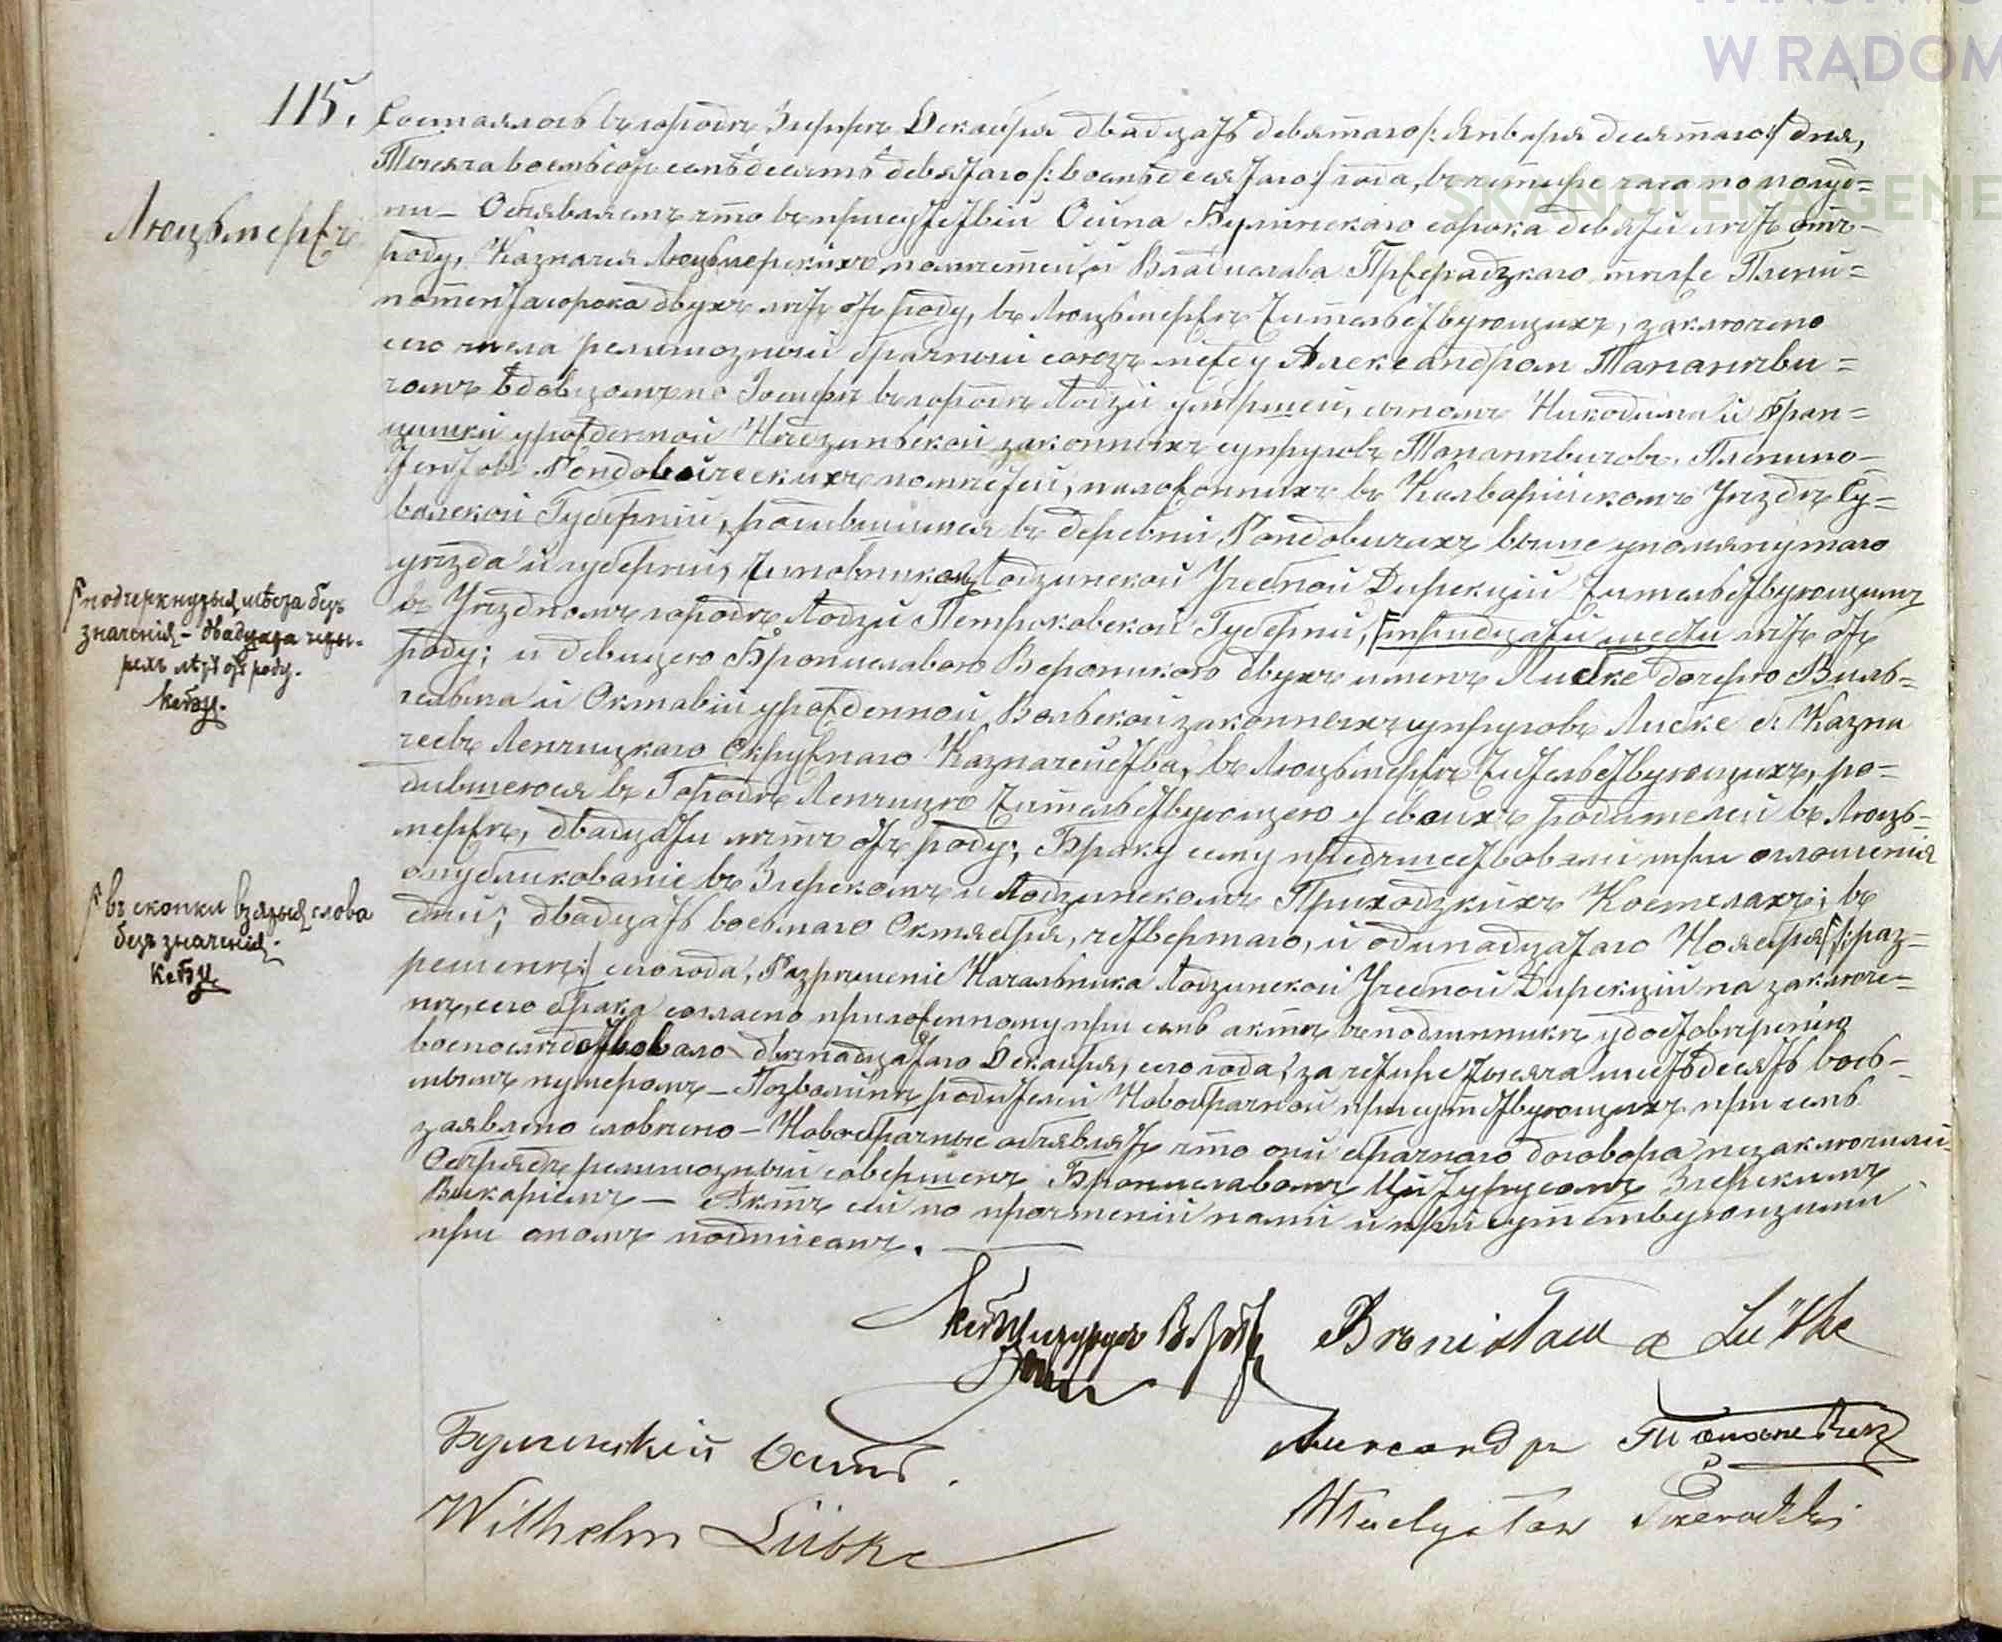 W RADOM
SKANOTEKA GENE
115.
Люцьмержъ
Состоялось въ городѣ Згержѣ Декабря двадцать девятаго /: Января десятаго :/ дня,
Тысяча восемьсотъ семьдесятъ девятаго /: восемьдесятаго :/ года, въ четыре часа по полуд=
ни – Объявляемъ что въ присутствіи Осипа сорока девяти лѣтъ отъ
роду, Казначея Люцьмерскихъ помѣстей, и Владислава тоже Плени=
потента сорока двухъ лѣтъ отъ роду, въ Люцьмержѣ жительствующихъ, заключено
сего числа религіозный брачный союзъ между Александром Танани­еви=
чомъ вдовцомъ по Іозефѣ въ городѣ Лодзи умершей, сыномъ Никодима и Фран=
цишки урожденной законныхъ супруговъ Тапаніевичовъ, Пленипо=
тентовъ помѣстей, положонныхъ въ Кальварійскомъ Уѣздѣ Су=
валской Губерніи, родившимся въ деревни выше упомянутаго
уѣзда и губерніи, чиновникомъ Лодзинской Учебной Дирекціи жительствующимъ
въ Уѣздномъ городѣ Лодзи Петроковской Губерніи, тридцати шести лѣтъ отъ
роду; и дѣвицею Брониславою Вероникою двухъ именъ Либке дочерью Виль=
гельма и Октавіи урожденной Вольской законныхъ супруговъ Либке б. Казна
чеевъ Ленчицкаго Окружнаго Казначейства, въ Люцьмержѣ жительствующихъ, ро=
дившеюся въ Городѣ Ленчицю жительствующею у своихъ родителей въ Люць=
мержѣ, двадцати лѣтъ отъ роду; Браку сему предшествовали три оглошенія
опубликованіе въ Згерскомъ и Лодзинскомъ Приходзкихъ Костелахъ; въ
дни; двадцать восьмаго Октября, четвертаго, и одинадцатаго Ноября /: раз=
решенъ :/ сего года, Разрѣшеніе Начальника Лодзинской Учебной Дирекціи на заключе=
нѣ сего брака согласно приложенному при семъ актѣ въ подлинникѣ удостовѣренію
воспослѣдовало двѣнадцатаго Декабря, сего года, за четыре тысяча шестьдесятъ вось=
мымъ нумеромъ – Позволеніѣ родителей Новобрачной присутствующихъ при семъ
заявлено словесно – Новобрачные объявляютъ что они брачного договора незаключили
Обрядъ религіозный совершенъ Брониславомъ Згерскимъ
Викаріемъ – Актъ сей по прочтеніи нами и присутствующими
при ономъ подписанъ.
подчеркнутыя мѣста безъ
значенія – двадцата четы-
рехъ лѣтъ отъ роду.
въ скопки взятыя слова
безъ значенія.
Bronisława Lübke
Осипъ
Александръ
Wilhelm Lübke
Władysław